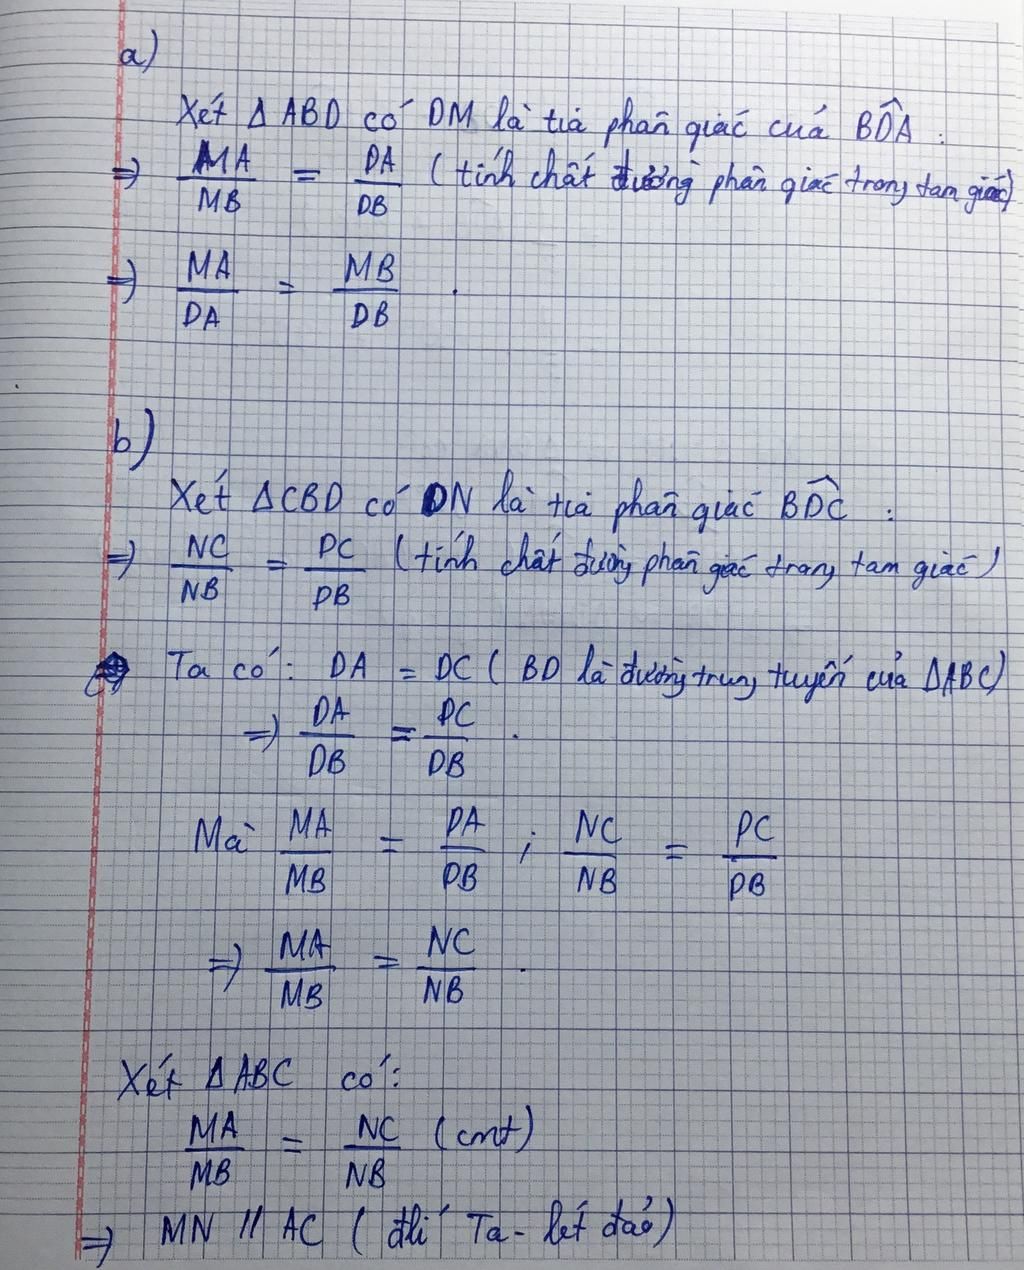 a)
Xét Δ ABD có DM là tia phân giác của BD̂A :
=> MA/MB = DA/DB ( tính chất đường phân giác trong tam giác)
=> MA/DA = MB/DB .
b)
Xét ΔCBD có DN là tia phân giác BD̂C :
=> NC/NB = DC/DB (tính chất đường phân giác trong tam giác)
Ta có: DA = DC ( BD là đường trung tuyến của ΔABC)
=> DA/DB = DC/DB .
Mà MA/MB = DA/DB ; NC/NB = DC/DB
=> MA/MB = NC/NB .
Xét Δ ABC có:
MA/MB = NC/NB (cmt)
=> MN // AC ( đlí Ta-lét đảo)